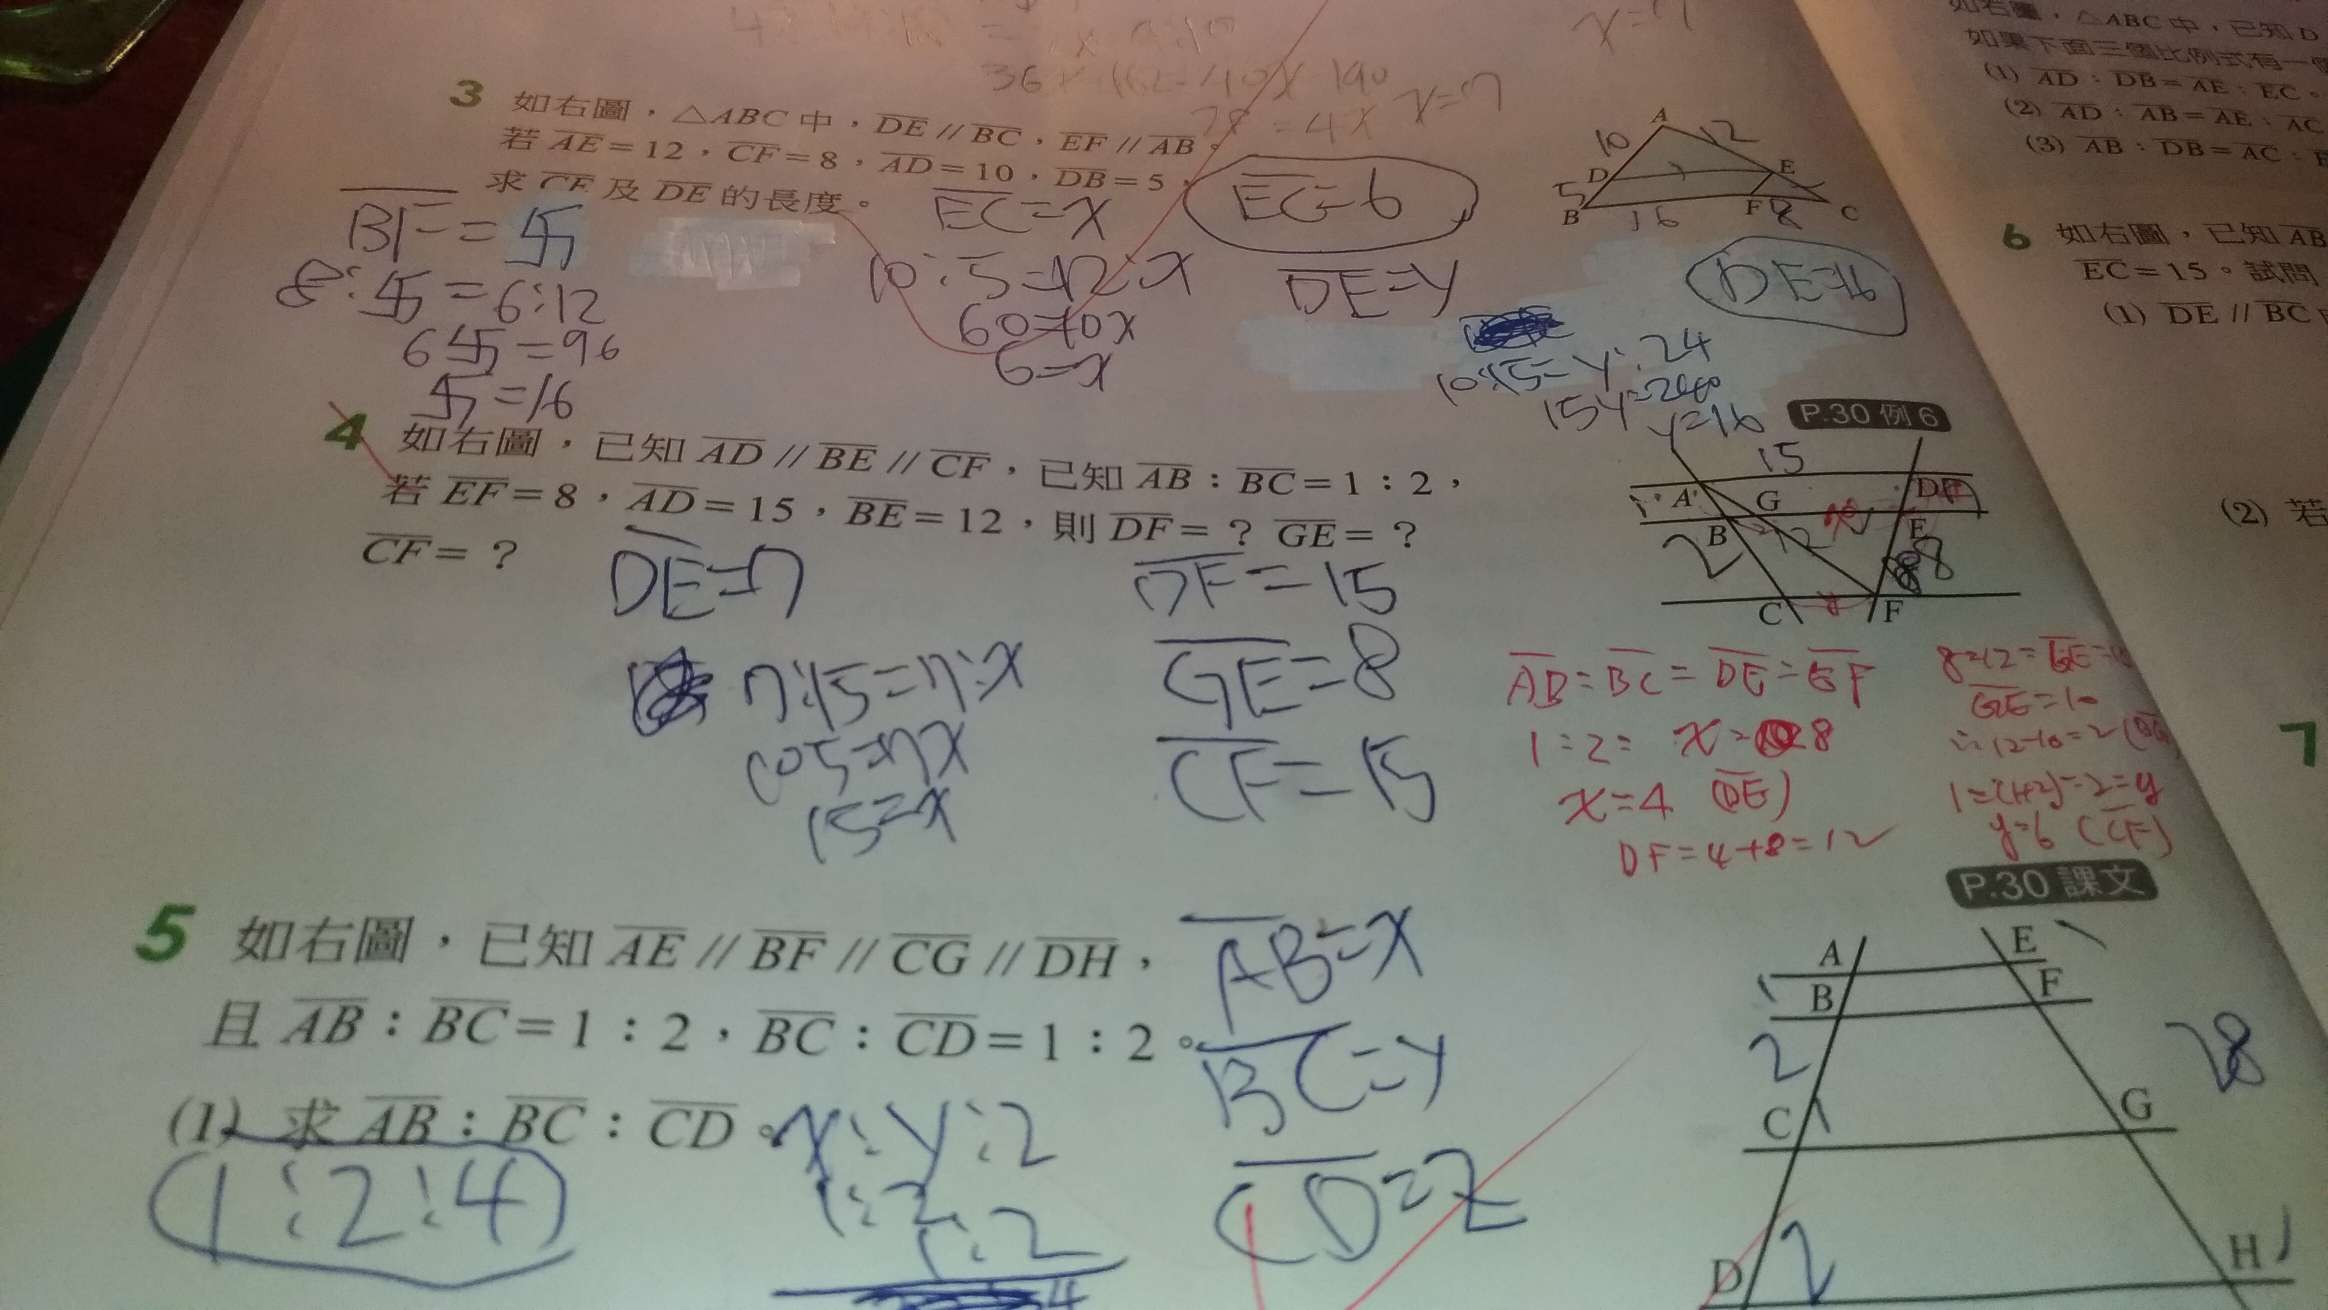 36x+162=40x+190
28=4x x=7
x=7
3 如右圖，△ABC中，DE // BC，EF // AB。
若 AE＝12，CF＝8，AD＝10，DB＝5，
求 CE 及 DE 的長度。
A
10
12
D
E
5
B
16
F
8
C
EC=x
10:5=12:x
60=10x
6=x
EC=6
DE=y
10:15=y:24
15y=240
y=16
DE=16
BF=
8: =6:12
6 =96
=16
P.30 例6
4 如右圖，已知 AD // BE // CF，已知 AB：BC＝1：2，
若 EF＝8，AD＝15，BE＝12，則 DF＝？ GE＝？
CF＝？
15
A
G
D
B
12
E
2
8
C
F
DE=7
7:15=7:x
105=7x
15=x
DF=15
GE=8
CF=15
AB:BC=DE:EF
1:2= x:8
x=4 (DE)
DF=4+8=12
GE=10
∴12-10=2
1:(1+2)=2:y
y=6 (CF)
P.30 課文
5 如右圖，已知 AE // BF // CG // DH，
且 AB：BC＝1：2，BC：CD＝1：2。
(1) 求 AB：BC：CD。
1:2:4
x:y:z
1:2
1:2
4
AB=x
BC=y
CD=z
A
E
1
B
F
2
28
C
1
G
D
2
H
如右圖，△ABC中，已知D
如果下面三個比例式有一
(1) AD：DB＝AE：EC。
(2) AD：AB＝AE：AC
(3) AB：DB＝AC：
6 如右圖，已知 AB
EC＝15。試問
(1) DE // BC
(2) 若
7